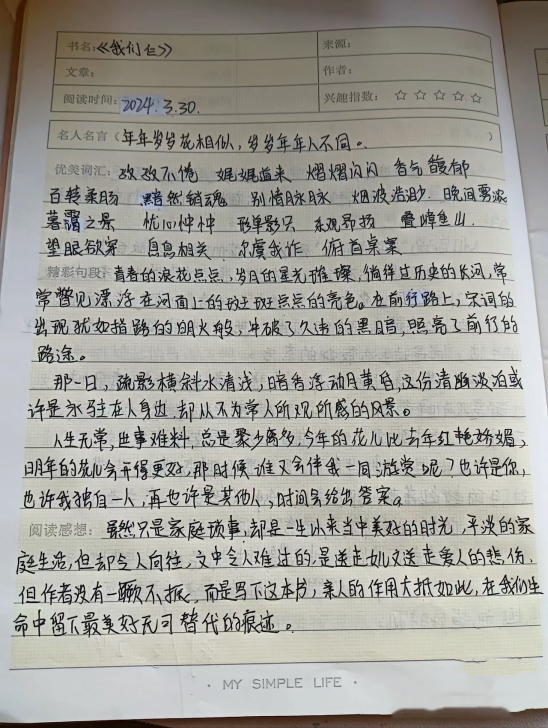 书名:《我们仨》 来源:
文章: 作者:
阅读时间: 2024.3.30. 兴趣指数: ☆ ☆ ☆ ☆ ☆
名人名言（年年岁岁花相似，岁岁年年人不同。）
优美词汇: 孜孜不倦 娓娓道来 熠熠闪闪 香气馥郁
百转柔肠 黯然销魂 别情脉脉 烟波浩渺 晚间雾浓
暮霭之景 忧心忡忡 形单影只 乐观昂扬 叠嶂重山
望眼欲穿 息息相关 尔虞我诈 俯首桌案
精彩句段: 青春的浪花点点，岁月的星光璀璨，徜徉过历史的长河，常
常瞥见漂浮在河面上的斑斑点点的亮色。在前行路上，宋词的
出现犹如指路的明火般，冲破了久违的黑暗，照亮了前行的
路途。
那一日，疏影横斜水清浅，暗香浮动月黄昏，这份清幽淡泊或
许是永驻在人身边，却从不为常人所观所感的风景。
人生无常，世事难料，总是聚少离多，今年的花儿比去年红艳娇媚，
明年的花儿会开得更好，那时候谁又会伴我一同游赏呢？也许是你，
也许我独自一人，再也许是其他人，时间会给出答案。
阅读感想: 虽然只是家庭琐事，却是一生以来当中美好的时光，平淡的家
庭生活，但却令人向往，文中令人难过的是送走女儿又送走爱人的悲伤，
但作者没有一蹶不振，而是写下这本书，亲人的作用大抵如此，在我们生
命中留下最美好无可替代的痕迹。
· MY SIMPLE LIFE ·